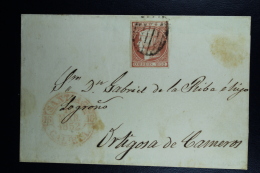 Sr. Dn. Gabriel de la Riba é hijo
Logroño
Ortigosa de Cameros